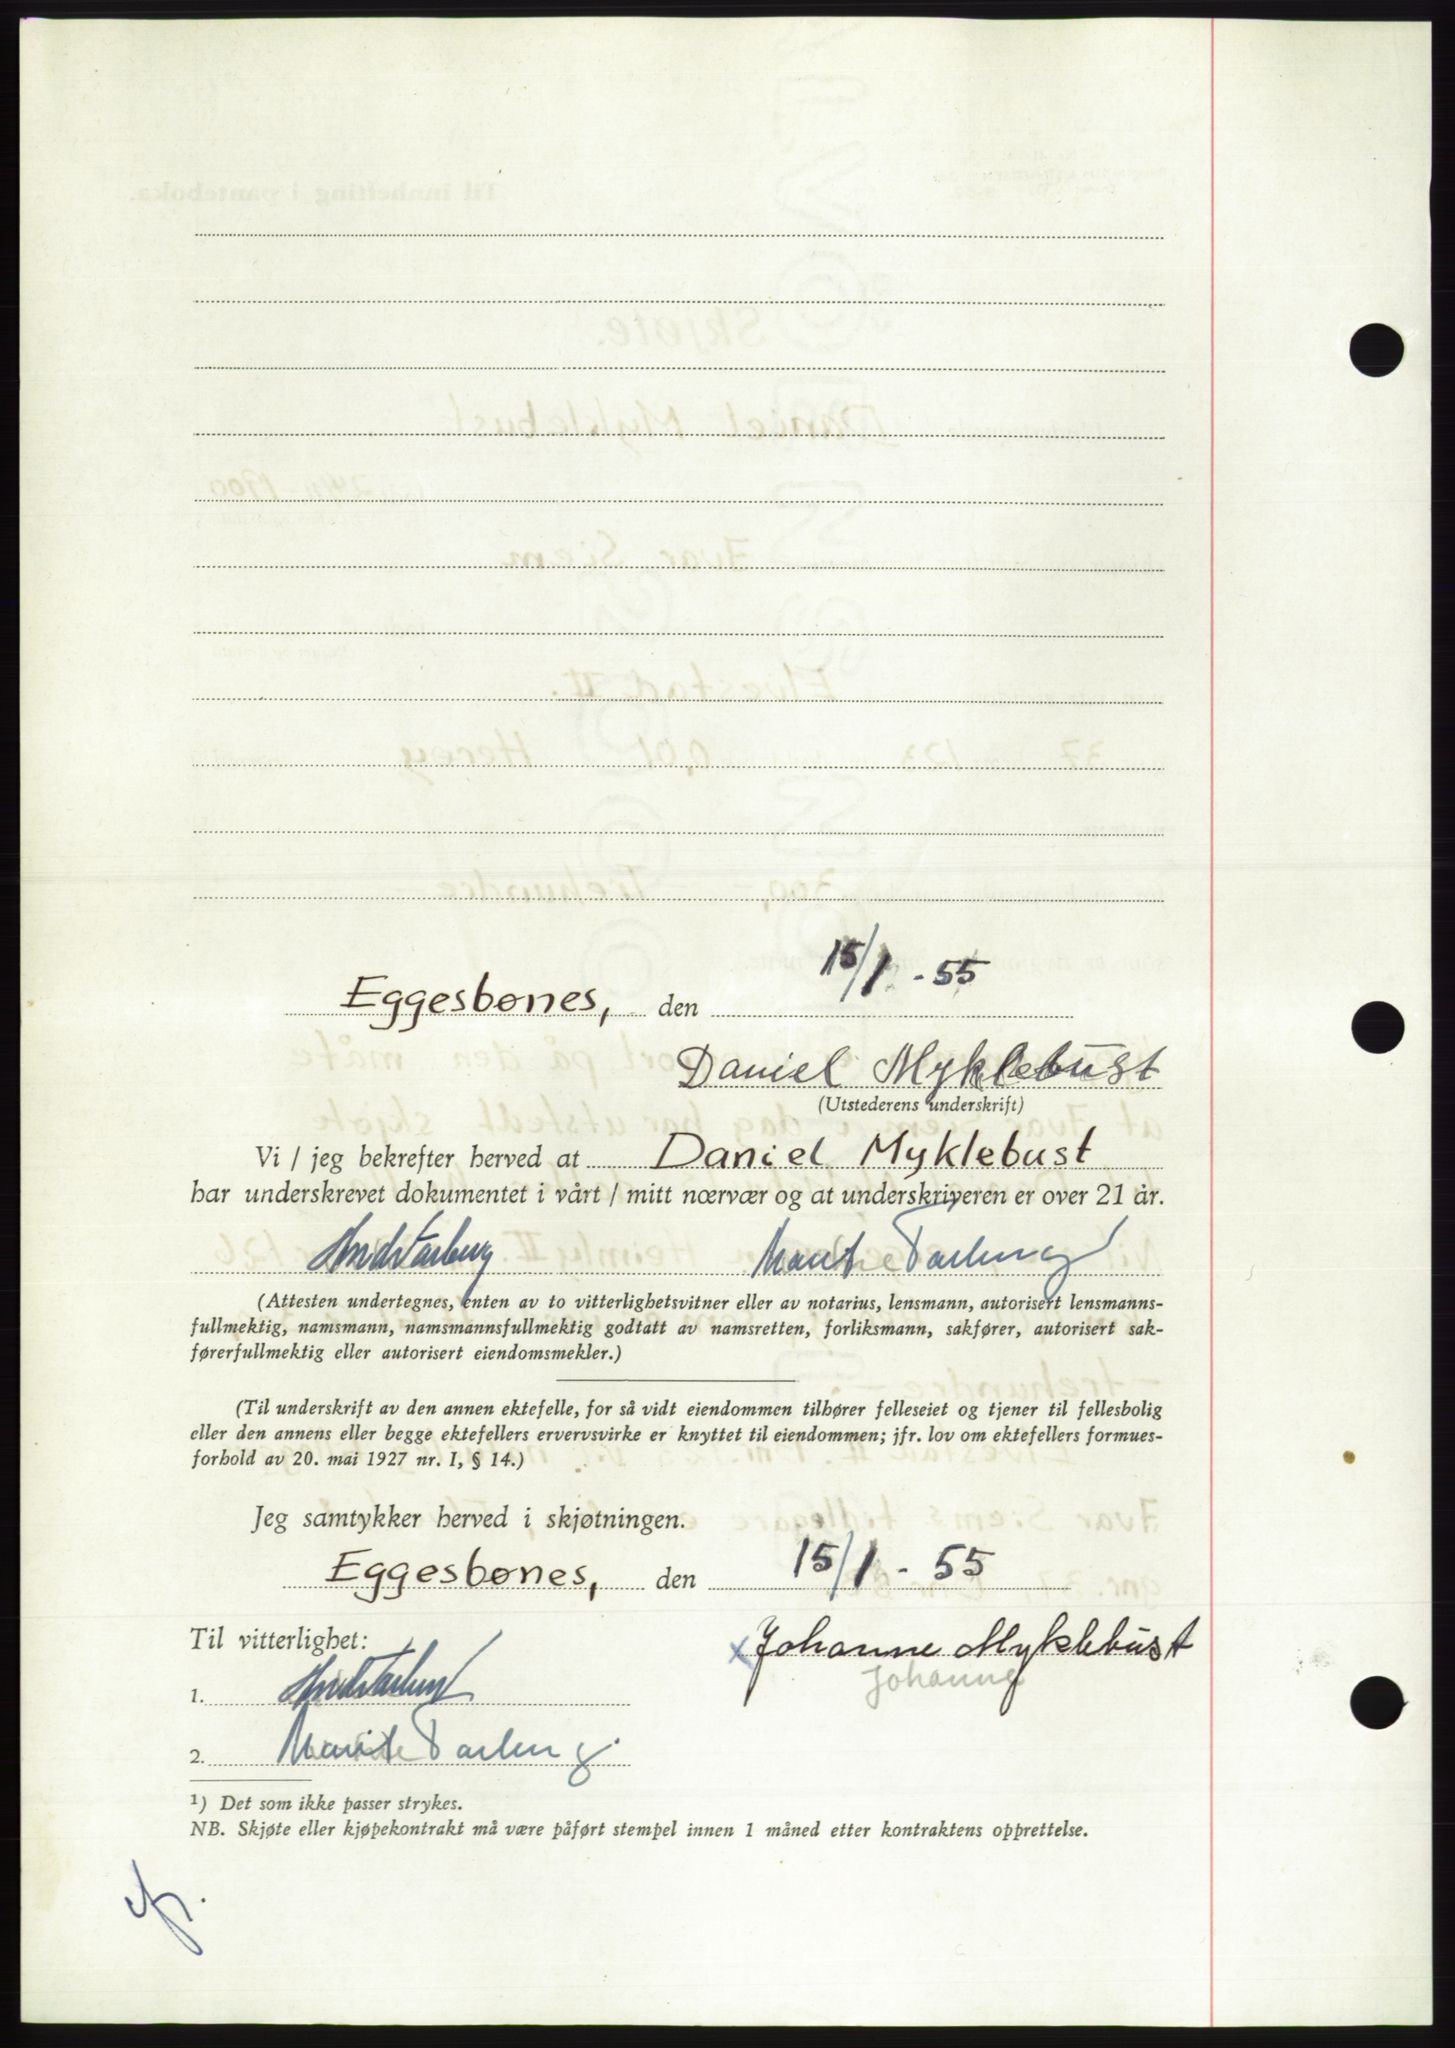 Eggesbønes, den 15/1 - 55
Daniel Myklebust
(Utstederens underskrift)
Vi / jeg bekrefter herved at Daniel Myklebust
har underskrevet dokumentet i vårt / mitt nærvær og at underskriveren er over 21 år.
Marit Tarberg
(Attesten undertegnes, enten av to vitterlighetsvitner eller av notarius, lensmann, autorisert lensmanns-
fullmektig, namsmann, namsmannsfullmektig godtatt av namsretten, forliksmann, sakfører, autorisert sak-
førerfullmektig eller autorisert eiendomsmekler.)
(Til underskrift av den annen ektefelle, for så vidt eiendommen tilhører felleseiet og tjener til fellesbolig
eller den annens eller begge ektefellers ervervsvirke er knyttet til eiendommen; jfr. lov om ektefellers formues-
forhold av 20. mai 1927 nr. 1, § 14.)
Jeg samtykker herved i skjøtningen.
Eggesbønes, den 15/1 - 55
Til vitterlighet:
x Johanne Myklebust
Johanne
1.
2. Marit Tarberg
1) Det som ikke passer strykes.
NB. Skjøte eller kjøpekontrakt må være påført stempel innen 1 måned etter kontraktens opprettelse.